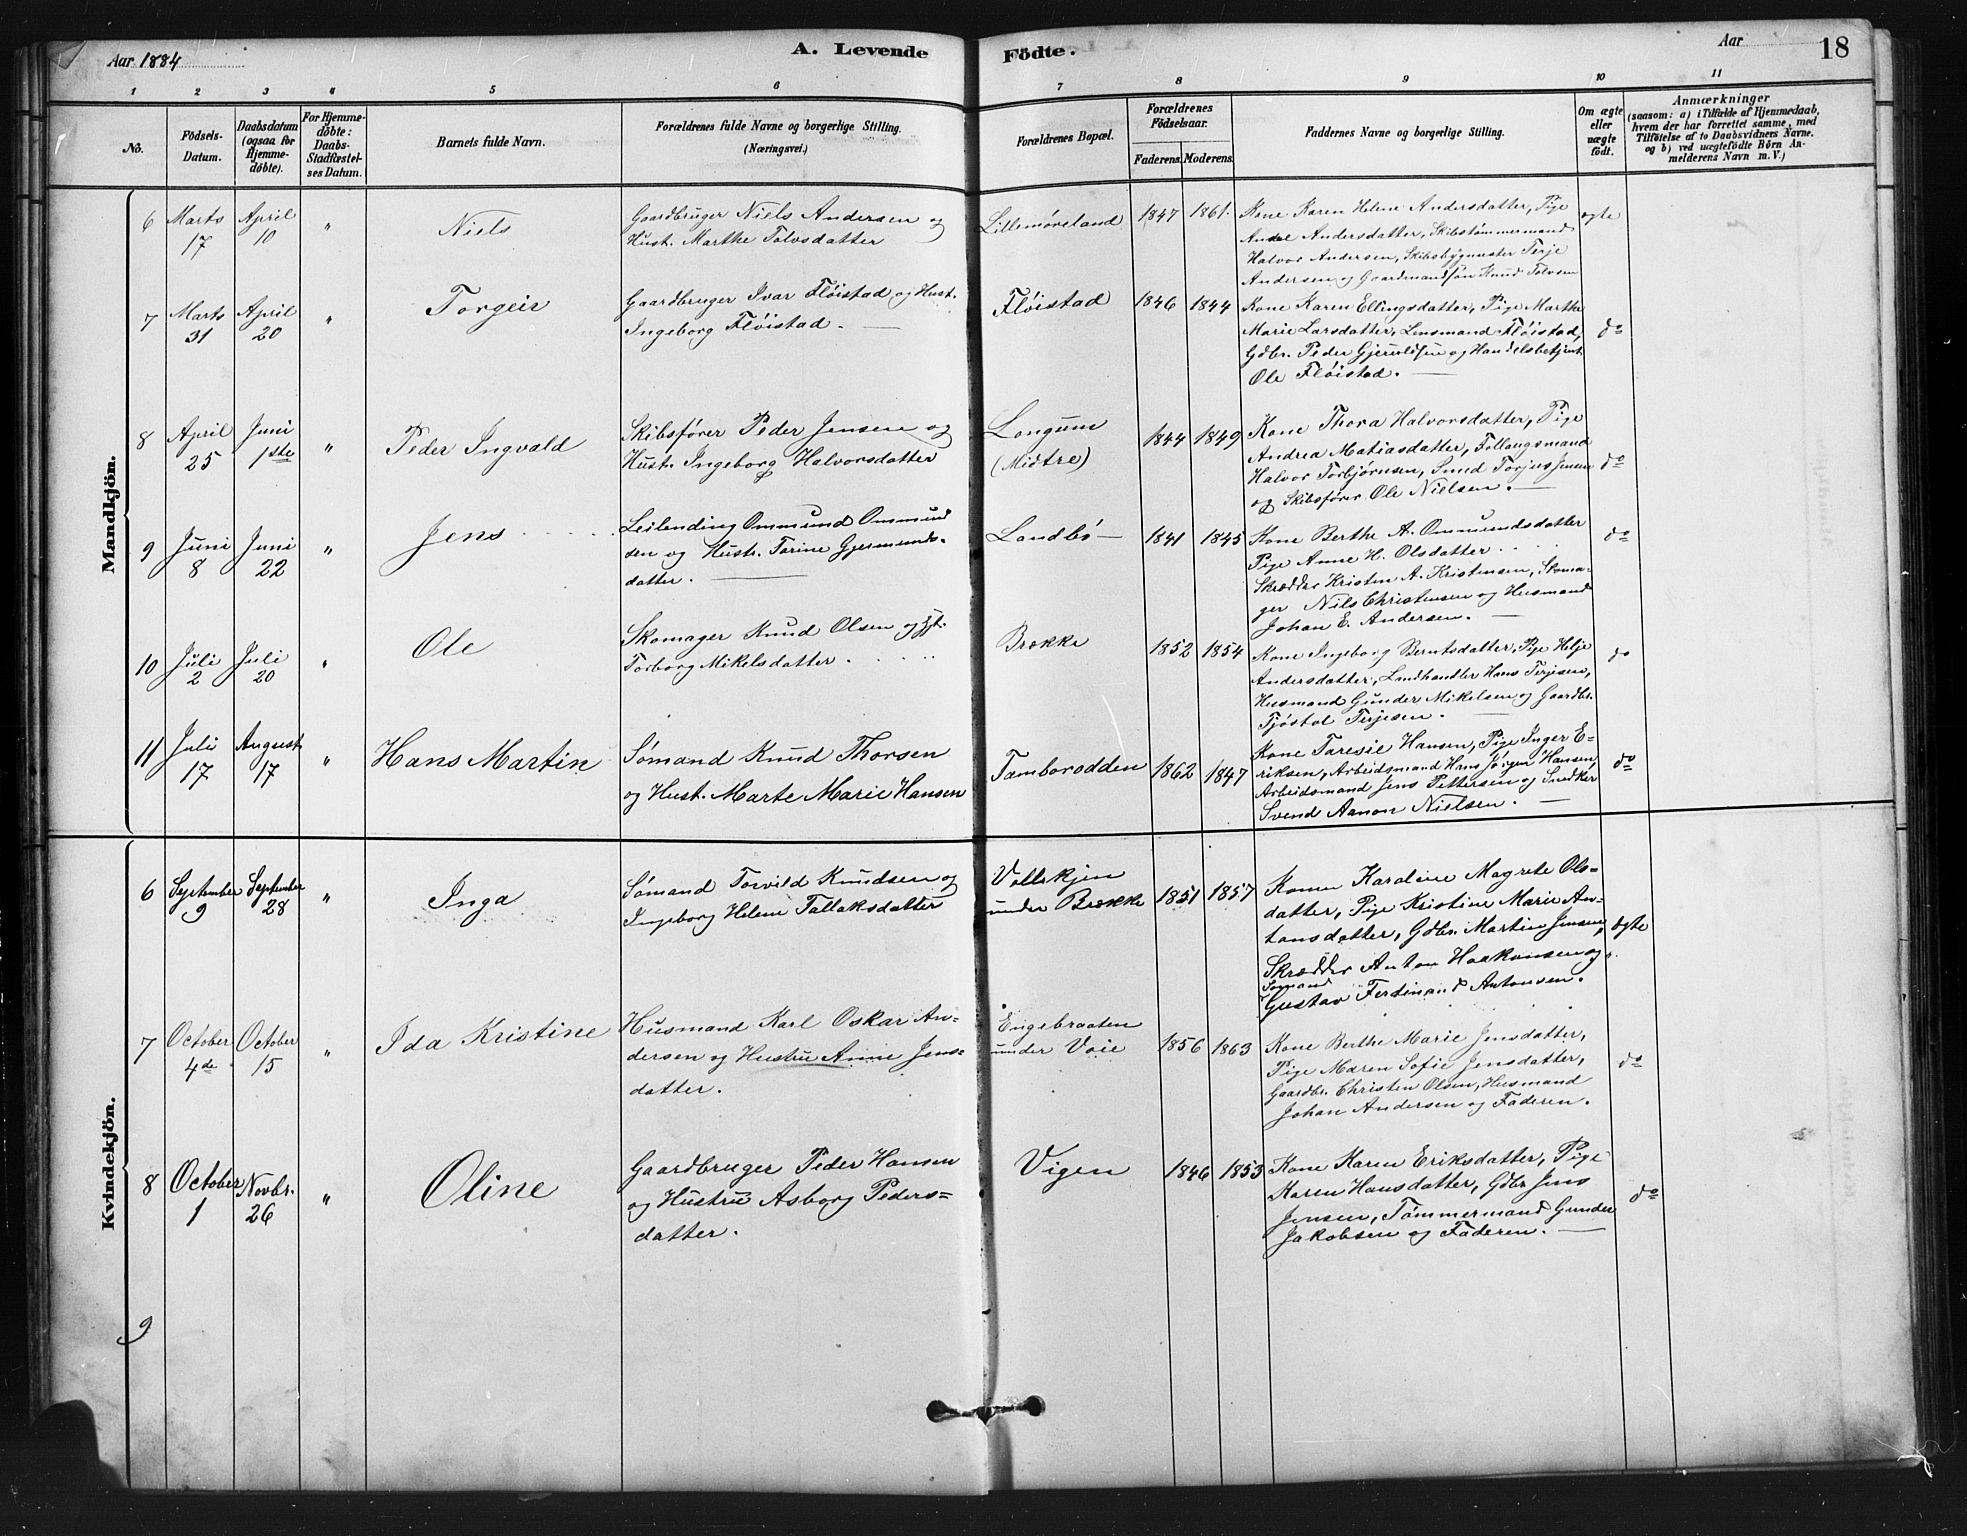 Aar 1884
A. Levende
Födte.
Aar
18
1 2 3 4 5 6 7 8 9 10 11
No.
Födsels-
Datum.
Daabsdatum
(ogsaa for
Hjemme-
döbte).
For Hjemme-
döbte:
Daabs-
Stadfæstel-
ses Datum.
Barnets fulde Navn.
Forældrenes fulde Navne og borgerlige Stilling.
(Næringsvei.)
Forældrenes Bopæl.
Forældrenes
Födselsaar.
Faderens. Moderens.
Faddernes Navne og borgerlige Stilling.
Om ægte
eller
uægte
födt.
Anmærkninger
(saasom: a) i Tilfælde af Hjemmedaab,
hvem der har forrettet samme, med
Tilföielse af to Daabsvidners Navne.
og b) ved uægtefödte Börn An-
melderens Navn m. V.)
Mandkjön.
6
Marts
17
April
10
"
Niels
Gaardbruger Niels Andersen og
Hust. Marthe Tolvsdatter
Lillemøresland
1847 1861.
Kone Karen Helene Andersdatter, Pige
Andersdatter, Skibstømmermand
Halvor Andersen, Skibsbygmester Terje
Andersen og Gaardmandsøn Knud Tolvsen
ægte
7
Marts
31
April
20
"
Torgeir
Gaardbruger Ivar Fløistad og Hust.
Ingeborg Fløistad. —
Fløistad
1846 1844
Kone Karen Ellingsdatter, Pige Marthe
Marie Larsdatter, Lensmand Fløistad,
Gdbr. Peder Gjeruldsen og Handelsbetjent
Ole Fløistad. —
do
8
April
25
Juni
1ste
"
Peder Ingvald
Skibsfører Peder Jensen og
Hust. Ingeborg Halvorsdatter
Longum
(Midtre)
1844 1849
Kone Thora Halvorsdatter, Pige
Andrea Matiasdatter, Tollaugsmand
Halvor Torbjørnsen, Smed Torjus Jensen
og Skibsfører Ole Nielsen. —
do
9
Juni
8
Juni
22
"
Jens
Leilending Ommund Ommund
sen og Hustr. Torine Gjermunds-
datter. —
Landbö —
1841 1845
Kone Berthe A. Ommundsdatter
Pige Anne H. Olsdatter
Skrædder Kristen A. Kristensen, Skoma-
ger Nils Christensen og Husmand
Johan E. Andersen. —
do
10
Juli
2
Juli
20
"
Ole
Skomager Knud Olsen og Hst.
Torborg Mikelsdatter.
Brække
1852 1854
Kone Ingeborg Berntsdatter, Pige Helje
Andersdatter, Landhandler Hans Terjesen,
Husmand Gunder Mikelsen og Gaardbr.
Tjöstol Terjesen. —
do
11
Juli
17
August
17
"
Hans Martin
Sømand Knud Thorsen
og Hust. Marte Marie Hansen
Tamborodden
1862 1847
Kone Taresie Hansen, Pige Inger E-
riksen, Arbeidsmand Hans Jörgen Hansen,
Arbeidsmand Jens Pettersen og Snedker
Svend Aanon Nielsen. —
do
Kvindekjön.
6
September
9
September
28
"
Inga
Sømand Torvild Knudsen og
Ingeborg Helene Tallaksdatter
Vallekjen
under Brække
1851 1857
Konen Karoline Magrete Ols-
datter, Pige Kristine Marie An-
tonsdatter, Gdbr. Martin Jensen,
Skrædder Anton Haakonsen og
Sømand
Gustav Ferdinand Antonsen.
ægte
7
October
4de
October
15
"
Ida Kristine
Husmand Karl Oskar An-
dersen og Hustru Anne Jens-
datter.
Engebraaten
under Voie
1856 1863
Kone Berthe Marie Jensdatter,
Pige Maren Sofie Jensdatter,
Gaardbr. Christen Olsen, Husmand
Johan Andersen og Faderen.
do
8
October
1
Novbr.
26
"
Oline
Gaardbruger Peder Hansen
og Hustru Asborg Peders-
datter.
Vigen
1846 1853
Kone Karen Eriksdatter, Pige
Karen Hansdatter, Gdbr Jens
Jensen, Tømmermand Gunder
Jakobsen og Faderen. —
do
9